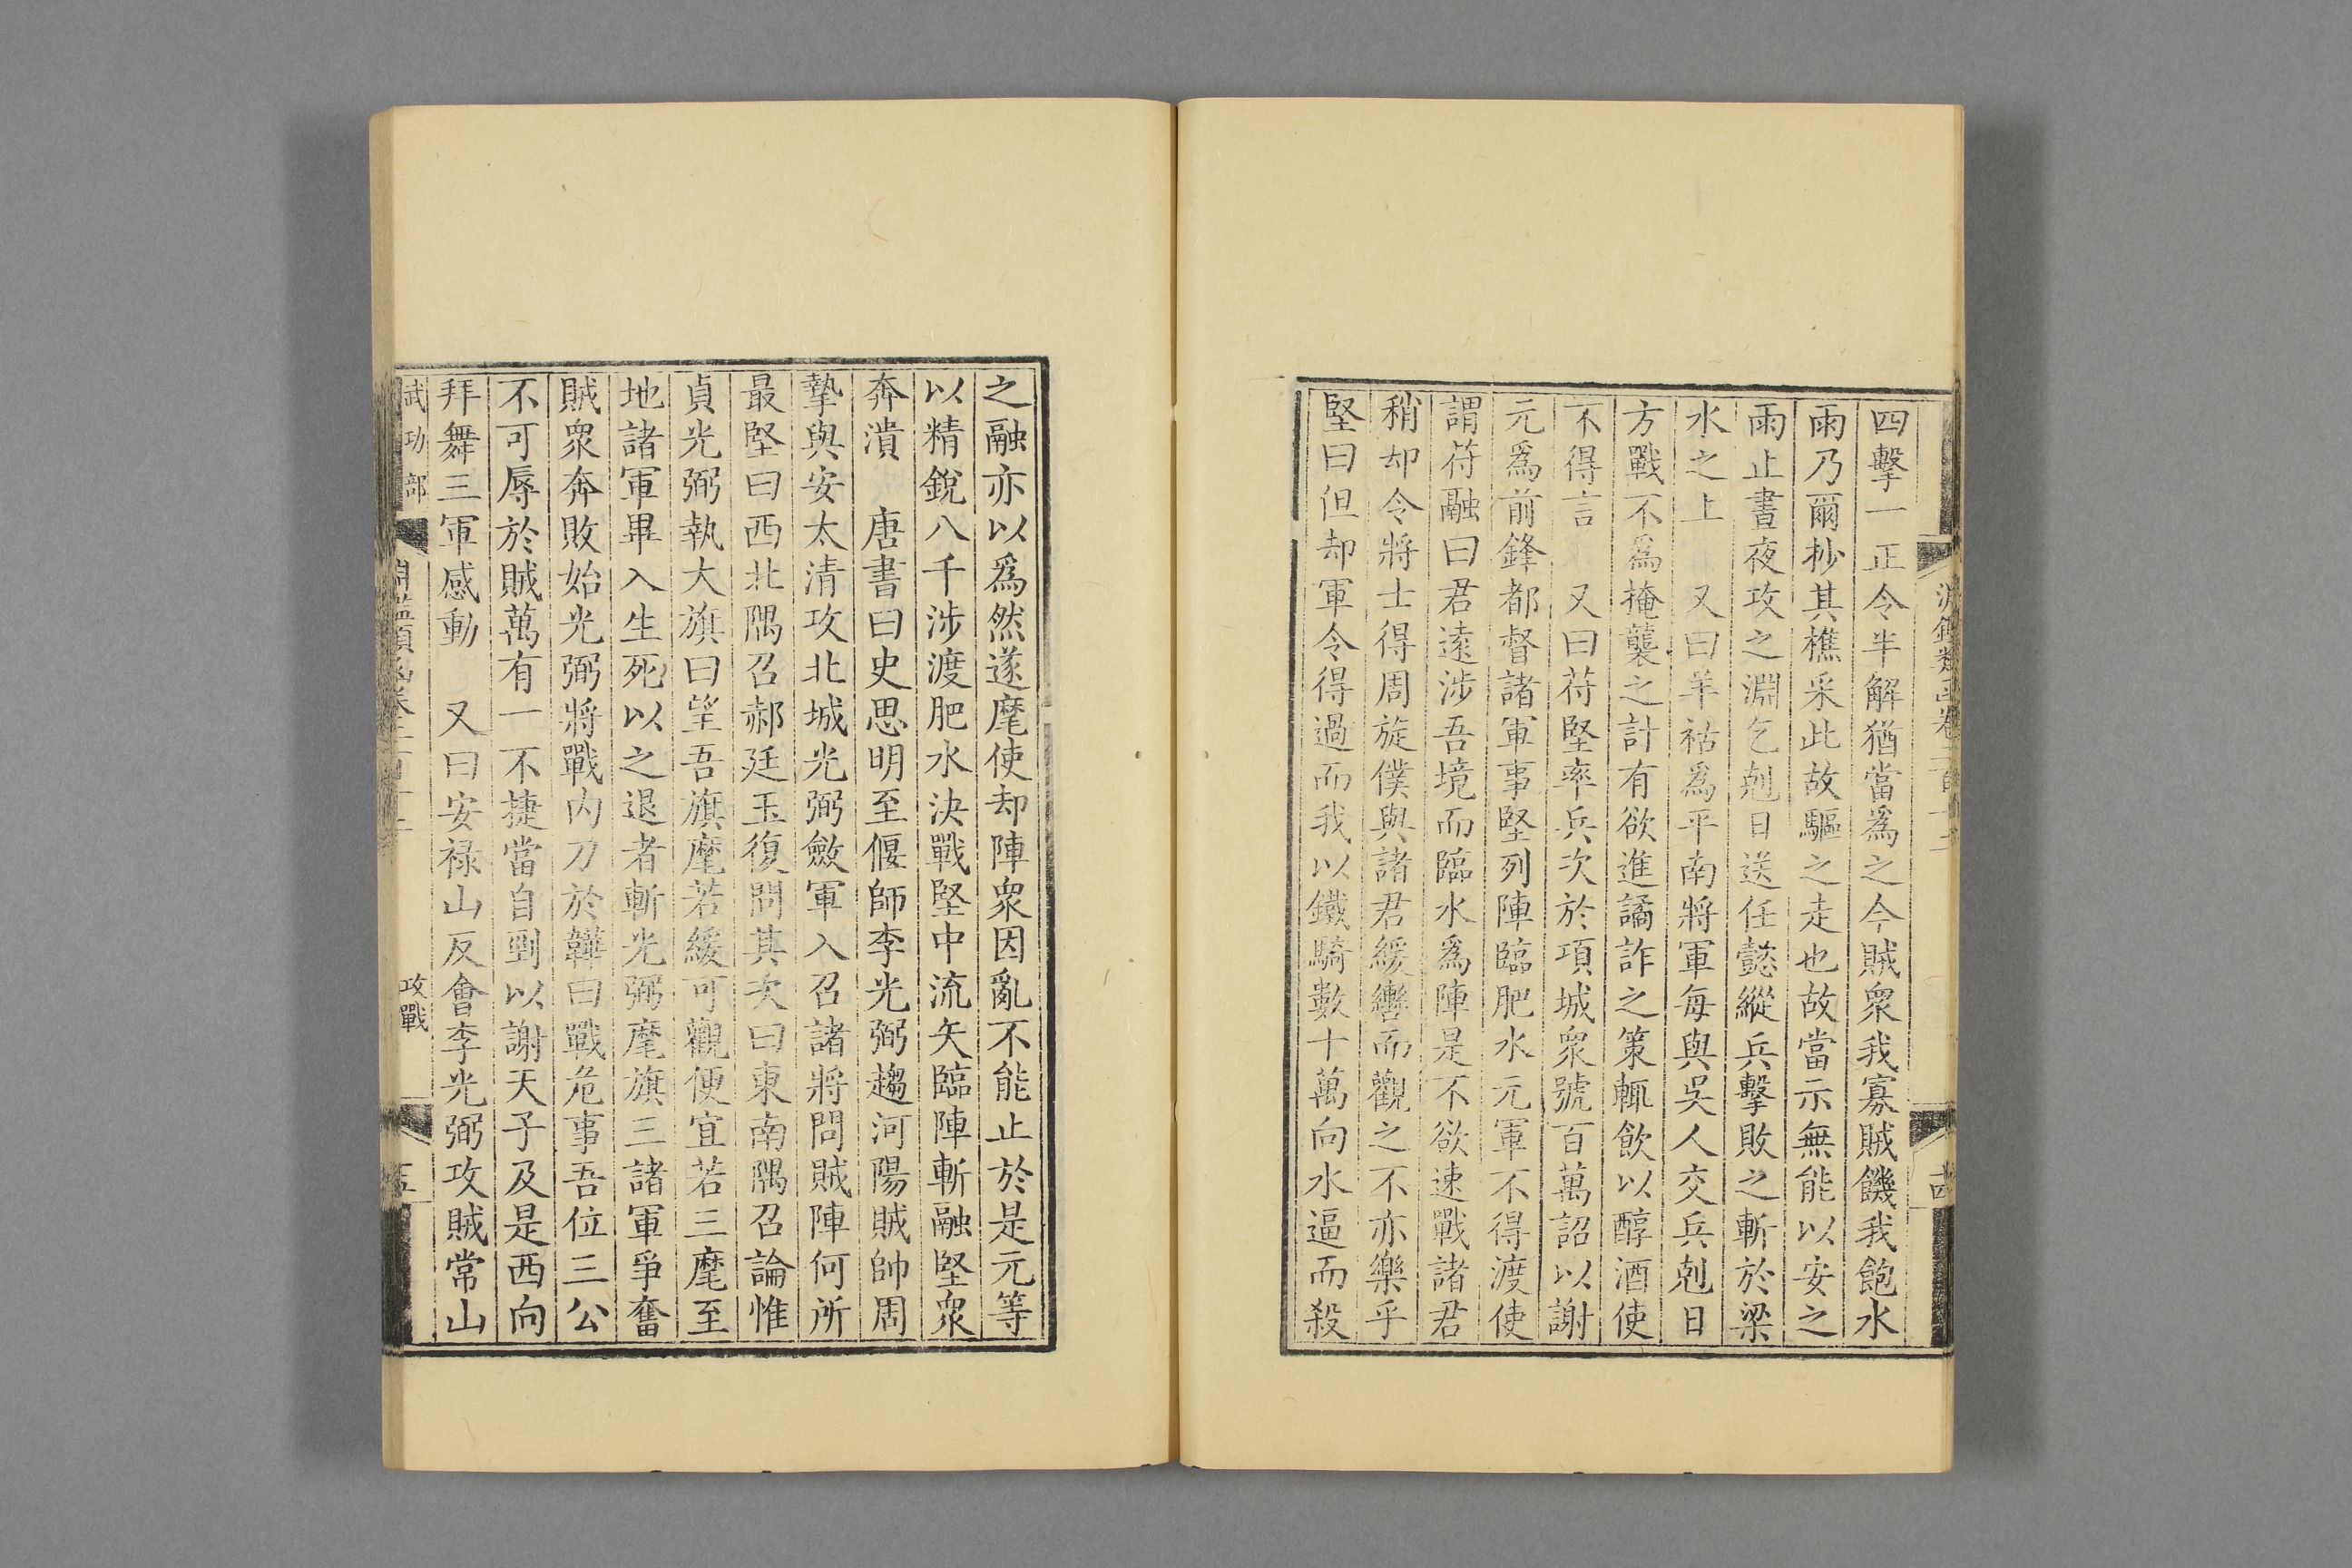 四擊一正令半解猶當爲之今賊衆我寡賊饑我飽水
雨乃爾抄其樵采此故驅之走也故當示無能以安之
雨止晝夜攻之淵乞剋日送任懿縱兵擊敗之斬於梁
水之上　又曰羊祜爲平南將軍每與吳人交兵剋日
方戰不爲掩襲之計有欲進譎詐之策輒飲以醇酒使
不得言　又曰苻堅率兵次於項城衆號百萬詔以謝
元爲前鋒都督諸軍事堅列陣臨肥水元軍不得渡使
謂苻融曰君遠涉吾境而臨水爲陣是不欲速戰諸君
稍却令將士得周旋僕與諸君緩轡而觀之不亦樂乎
堅曰但却軍令得過而我以鐵騎數十萬向水逼而殺
之融亦以爲然遂麾使却陣衆因亂不能止於是元等
以精銳八千涉渡肥水決戰堅中流矢臨陣斬融堅衆
奔潰　唐書曰史思明至偃師李光弼趨河陽賊帥周
摯與安太清攻北城光弼斂軍入召諸將問賊陣何所
最堅曰西北隅召郝廷玉復問其次曰東南隅召論惟
貞光弼執大旗曰望吾旗麾若緩可觀便宜若三麾至
地諸軍畢入生死以之退者斬光弼麾旗三諸軍爭奮
賊衆奔敗始光弼將戰內刀於鞾曰戰危事吾位三公
不可辱於賊萬有一不捷當自剄以謝天子及是西向
拜舞三軍感動　又曰安祿山反會李光弼攻賊常山
武功部
攻戰